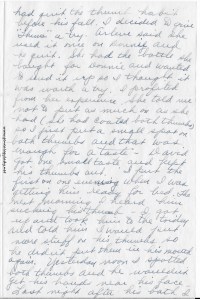 had quit the thumb habit
before his fall. I decided I'd give
"Thum" a try. Arlene said she
used it once on Bonnie and
it quit. She had the bottle she
bought for Bonnie and wanted
to send it up so I thought it
was worth a try. I profited
from her experience. She told me
not to put as much on as she
had (she had coated both thumbs)
so I just put a small spot on
both thumbs and that was
enough for a taste. David
got one small taste and kept
his thumbs out. I put the
first on one evening when I was
getting him ready for bed. The
next morning I heard him
sucking his thumb. I got
up and took him to the
and told him I would put
more stuff on his thumbs so
he didn't put them in his mouth
again. Yesterday noon I spotted
both thumbs and he wouldn't
get his hands near his face
Last night after his bath I